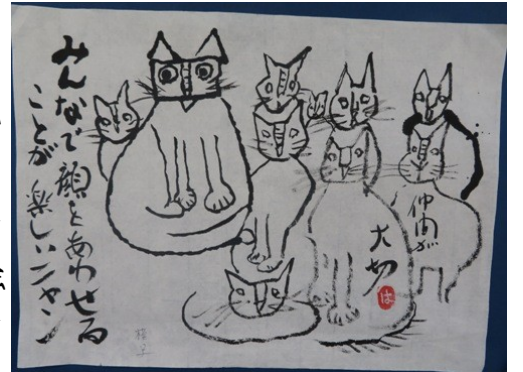 みんなで顔をあわせる
ことが楽しいニャン
仲間が
大切
は